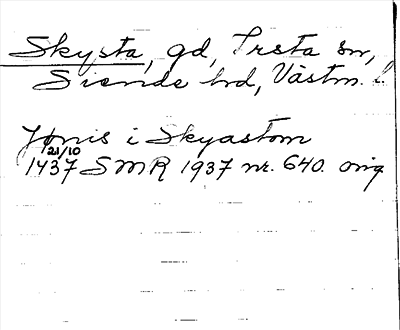 Skysta, gd, Irsta sn,
Siende hrd, Västm. l.
Jønis i Skyastom
21/10
1437 SMR 1937 nr. 640. orig.